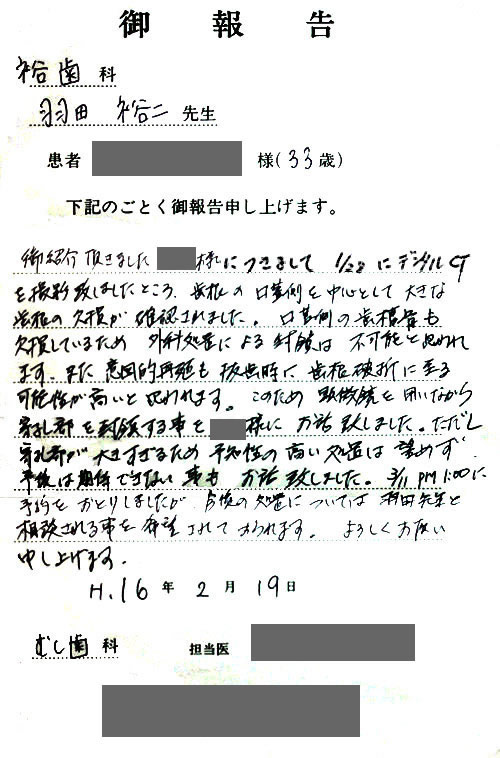 御報告
裕歯科
羽田 裕二 先生
患者 様(33歳)
下記のごとく御報告申し上げます。
御紹介頂きました 様につきまして 1/28 にデジタルCT
を撮影致しましたところ、歯根の口蓋側を中心として大きな
歯根の欠損が確認されました。口蓋側の歯槽骨も
欠損しているため 外科処置による封鎖は不可能と思われ
ます。また意図的再植も抜歯時に歯根破折に至る
可能性が高いと思われます。このため顕微鏡を用いながら
穿孔部を封鎖する事を 様に お話致しました。ただし
穿孔部が大きすぎるため予知性の高い処置は望めず
予後は期待できない事も お話致しました。3/11 PM 1:00に
予約をおとりしましたが、今後の処置については羽田先生と
相談される事を希望されておられます。よろしくお願い
申し上げます。
H.16年 2月 19日
むし歯科 担当医